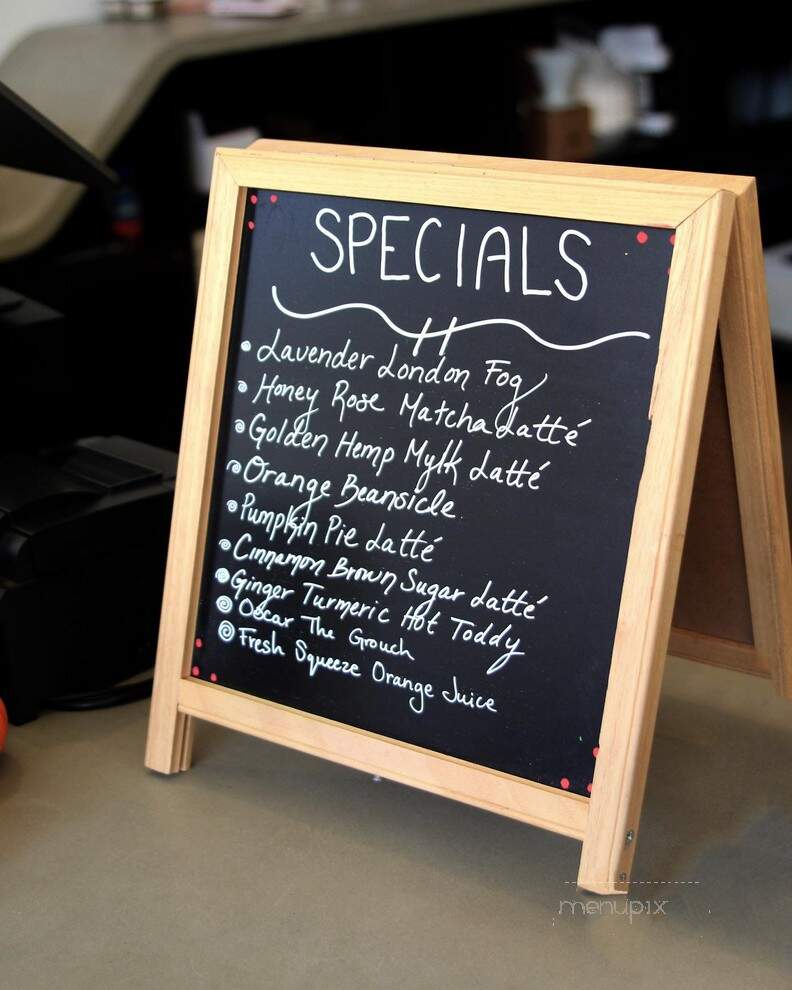 SPECIALS
Lavender London Fog
Honey Rose Matcha Latté
Golden Hemp Mylk Latté
Orange Beansicle
Pumpkin Pie Latté
Cinnamon Brown Sugar Latté
Ginger Turmeric Hot Toddy
Oscar The Grouch
Fresh Squeeze Orange Juice
menupix